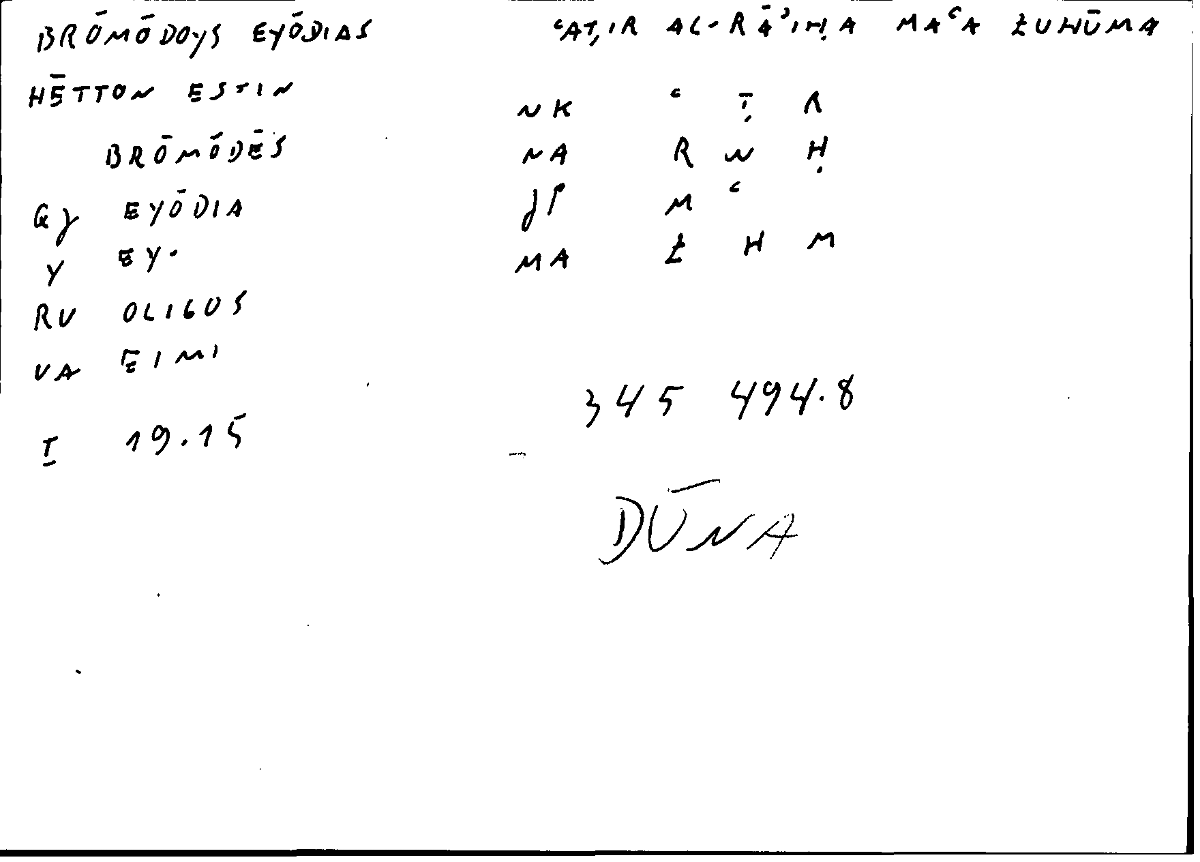 BRŌMŌDOYS EYŌDIAS
HĒTTON ESTIN
BRŌMŌDĒS
GJ EYŌDIA
Y EY·
RU OLIGOS
VA EIMI
I 19.15
ʿAṬIR AL-RĀʾIḤA MAʿA ZUHŪMA
NK ʿ Ṭ R
NA R W Ḥ
JP M ʿ
MA Z H M
345 494.8
DŪNA